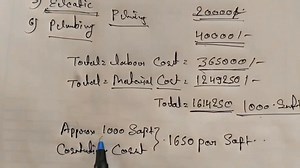 5) Elecatic 20000/-
6) Plumbing Pluing 40000/-
Total = Labour Cost = 365000/-
Total = Material Cost = 1249250/-
Total = 1614250 1000-Sqft
Approx 1000 Sqft
Costuction Cost } 1650 par Sqft..